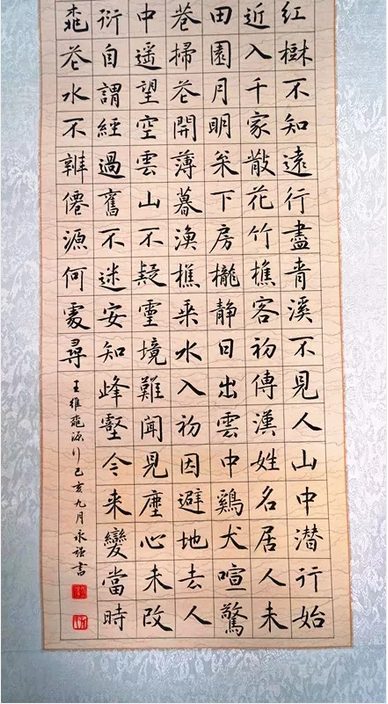 红樹不知遠行盡青溪不見人山中潜行始
近入千家散花竹樵客初傳漢姓名居人未
田園月明枩下房櫳静日出雲中鷄犬喧驚
巷掃花開薄暮漁樵乘水入初因避地去人
中遥望空雲山不疑靈境難聞見塵心未改
衍自謂經過舊不迷安知峰壑今来變當時
桃花水不辨僊源何處尋
王維桃源行己亥九月永强書